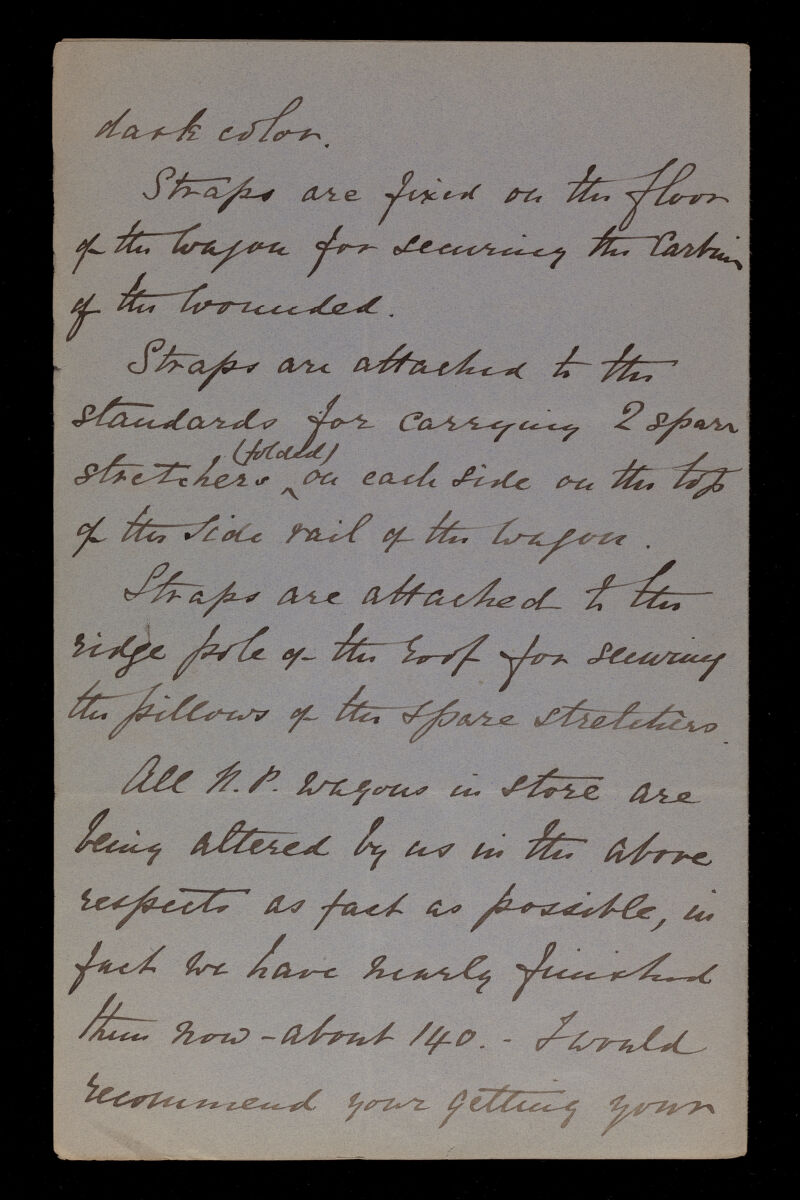 dark color.
Straps are fixed on the floor
of the wagon for securing the Carbine
of the wounded.
Straps are attached to the
standards for carrying 2 spare
stretchers (folded) on each side on the top
of the side rail of the wagon.
Straps are attached to the
ridge pole of the roof for securing
the pillows of the spare stretchers.
All N.P. wagons in store are
being altered by us in the above
respects as fast as possible, in
fact we have nearly finished
them now - about 140. - I would
recommend your getting your